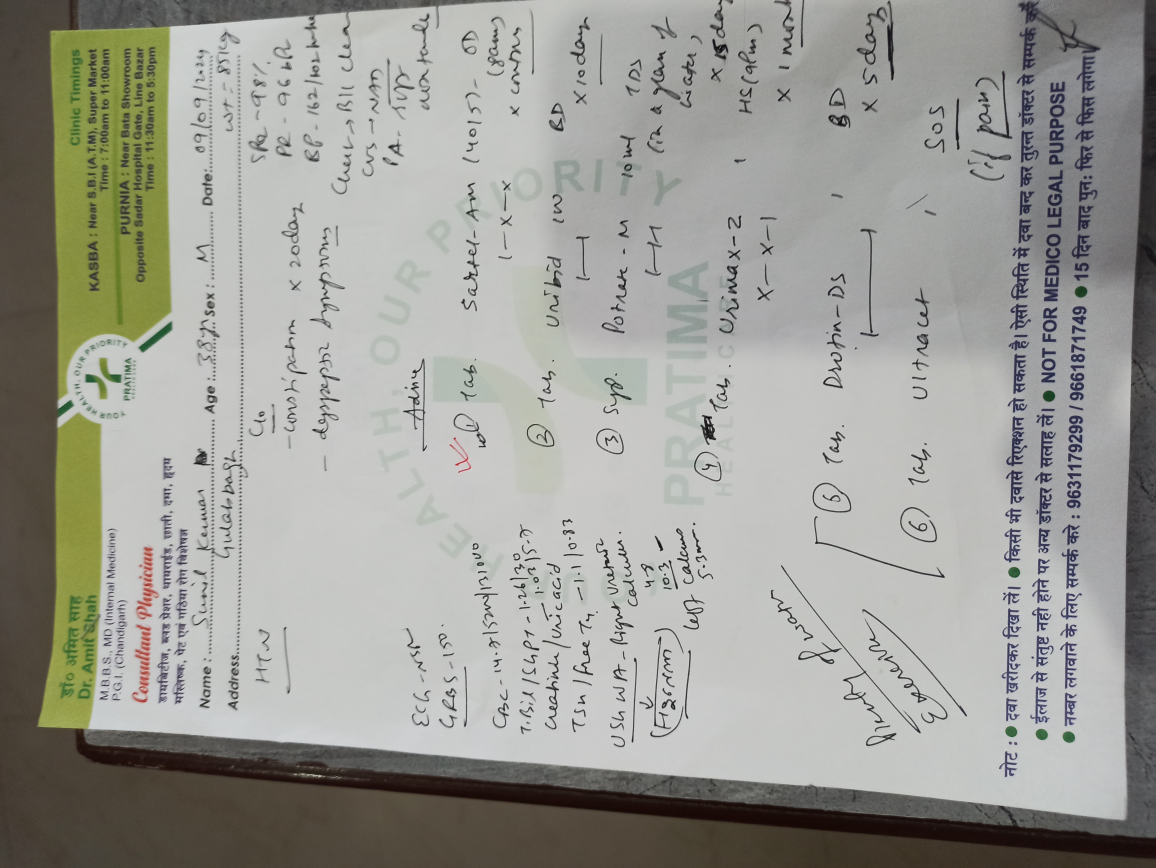 डॉ० अमित साह
Dr. Amit Shah
M.B.B.S., MD (Internal Medicine)
P.G.I. (Chandigarh)
Consultant Physician
डायबिटीज, ब्लड प्रेशर, थायराईड, छाती, दमा, हृदय
मस्तिष्क, पेट एवं गठिया रोग विशेषज्ञ
YOUR HEALTH, OUR PRIORITY
PRATIMA
Clinic Timings
KASBA : Near S.B.I (A.T.M), Super Market
Time : 7:00am to 11:00am
PURNIA : Near Bata Showroom
Opposite Sadar Hospital Gate, Line Bazar
Time : 11:30am to 5:30pm
Name : Sunil Kumar Age : 38y Sex : M Date: 09/09/2024
Address Gulabbagh
Wt - 85kg
HTN
C/o
- constipation x 20day
- dyspeptic symptoms
SPO2 - 98%
PR - 96
BP - 162/102
Chest → B/L clear
CVS → NAD
PA - Soft
ECG - NSR
GRBS - 150
T.Bil / SGPT - 1.26/30
Creatinine / Uric acid - 1.03/5.7
TSH / Free T4 - 1.1/0.83
USG W/A - Right ureteric calculus.
left calculus
5.3mm
Advise
① Tab. Sartel-Am (40/5) - OD
1-x-x (8am)
x continue
② Tab. Uribid BD
x 10days
③ Syp. Potrate-M 10ml TDS
(in a glass of water)
x 15day
④ Tab. Urimax-D
x-x-1 HS (9pm)
x 1 month
⑤ Tab. Drotin-DS 1 BD
x 5 days
⑥ Tab. Ultracet 1 SOS
(if pain)
YOUR HEALTH, OUR PRIORITY
PRATIMA
HEALTHCARE
नोट : ● दवा खरीदकर दिखा लें। ● किसी भी दवासे रिएक्शन हो सकता है। ऐसी स्थिति में दवा बन्द कर तुरन्त डॉक्टर से सम्पर्क करें
● ईलाज से संतुष्ट नही होने पर अन्य डॉक्टर से सलाह लें। ● NOT FOR MEDICO LEGAL PURPOSE
● नम्बर लगवाने के लिए सम्पर्क करें : 9631179299 / 9661871749 ● 15 दिन बाद पुन: फिर से फिस लगेगा